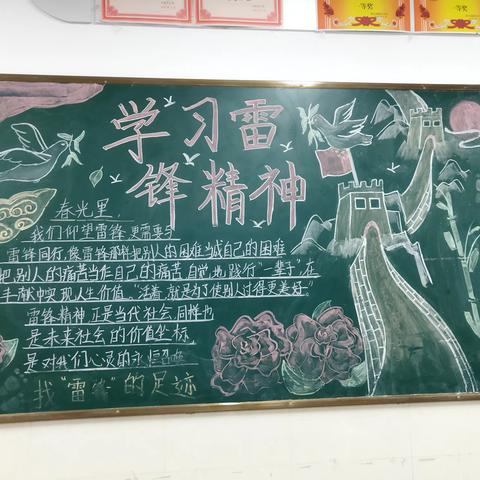 一等奖
一等奖
学习雷
锋精神
春光里,
我们仰望雷锋,更需要与
雷锋同行,像雷锋那样把别人的困难当成自己的困难
把别人的痛苦当作自己的痛苦,自觉地践行“一辈子”,在
献中实现人生价值。“活着,就是为了使别人过得更美好。”
雷锋精神正是当代社会,同样也
是未来社会的价值坐标,
是对我们心灵的永
找“雷锋”的足迹